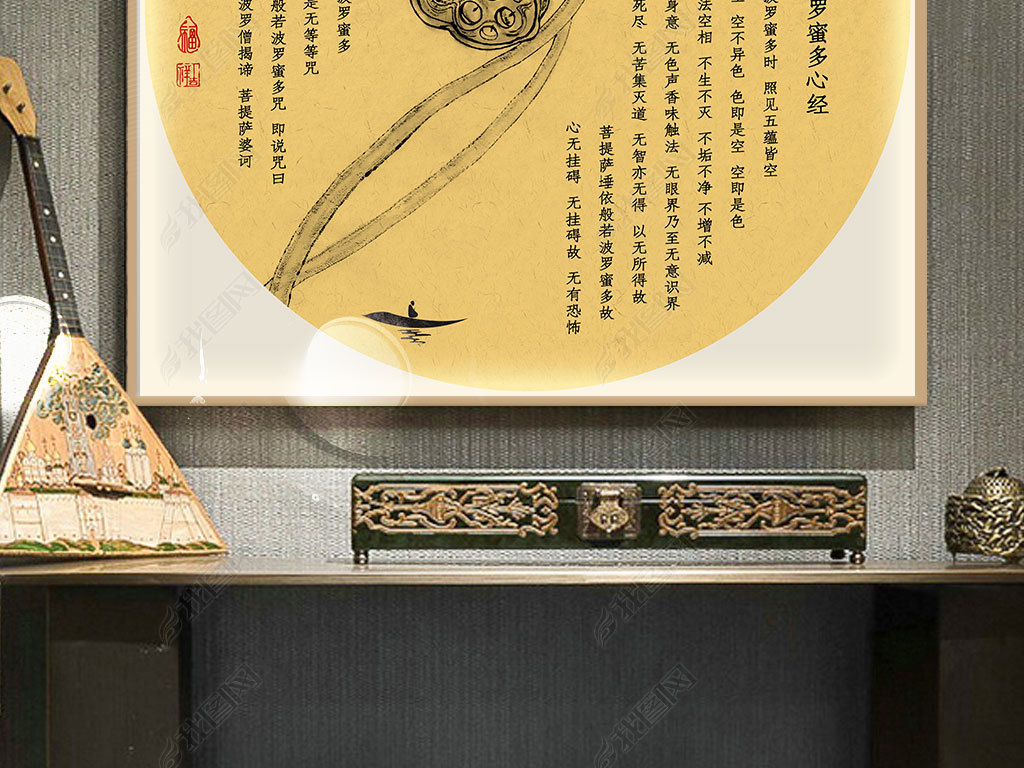 罗蜜多心经
波罗蜜多时 照见五蕴皆空
空不异色 色即是空 空即是色
法空相 不生不灭 不垢不净 不增不减
身意 无色声香味触法 无眼界乃至无意识界
死尽 无苦集灭道 无智亦无得 以无所得故
菩提萨埵依般若波罗蜜多故
心无挂碍 无挂碍故 无有恐怖
波罗蜜多
是无等等咒
般若波罗蜜多咒 即说咒曰
波罗僧揭谛 菩提萨婆诃
福